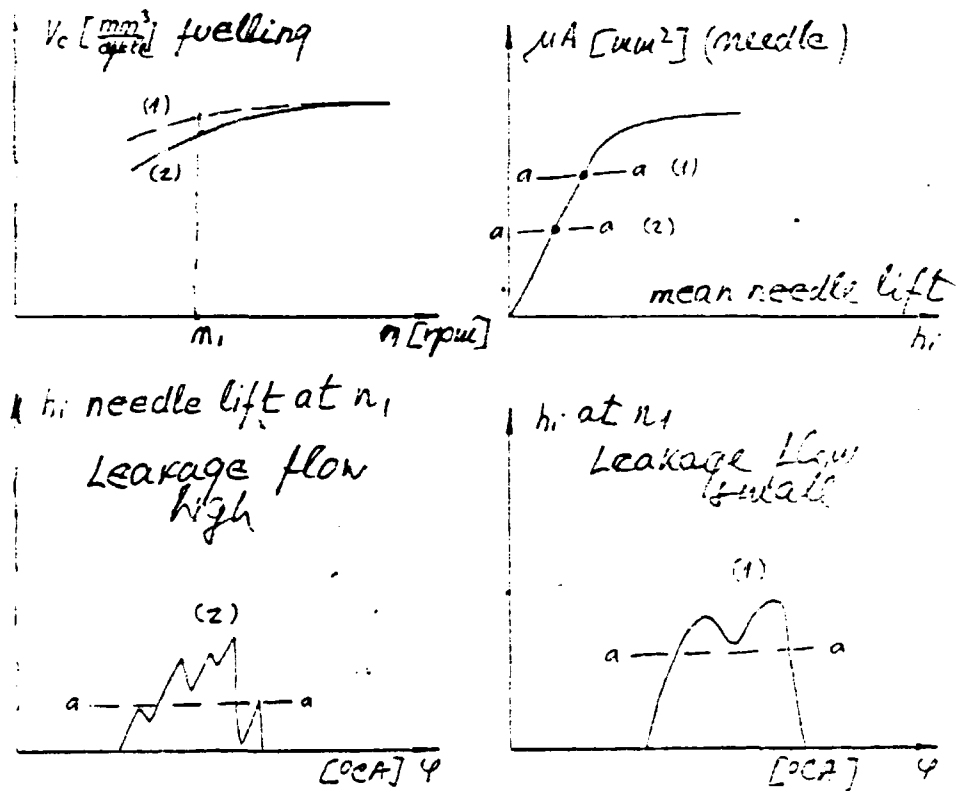 Vc [mm³/cycle] fuelling
(1)
(2)
n₁
n [rpm]
μA [mm²] (needle)
a — a (1)
a — a (2)
mean needle lift
hi
hi needle lift at n₁
Leakage flow
high
(2)
a — a
[°CA] φ
hi at n₁
Leakage flow
small
(1)
a — a
[°CA] φ